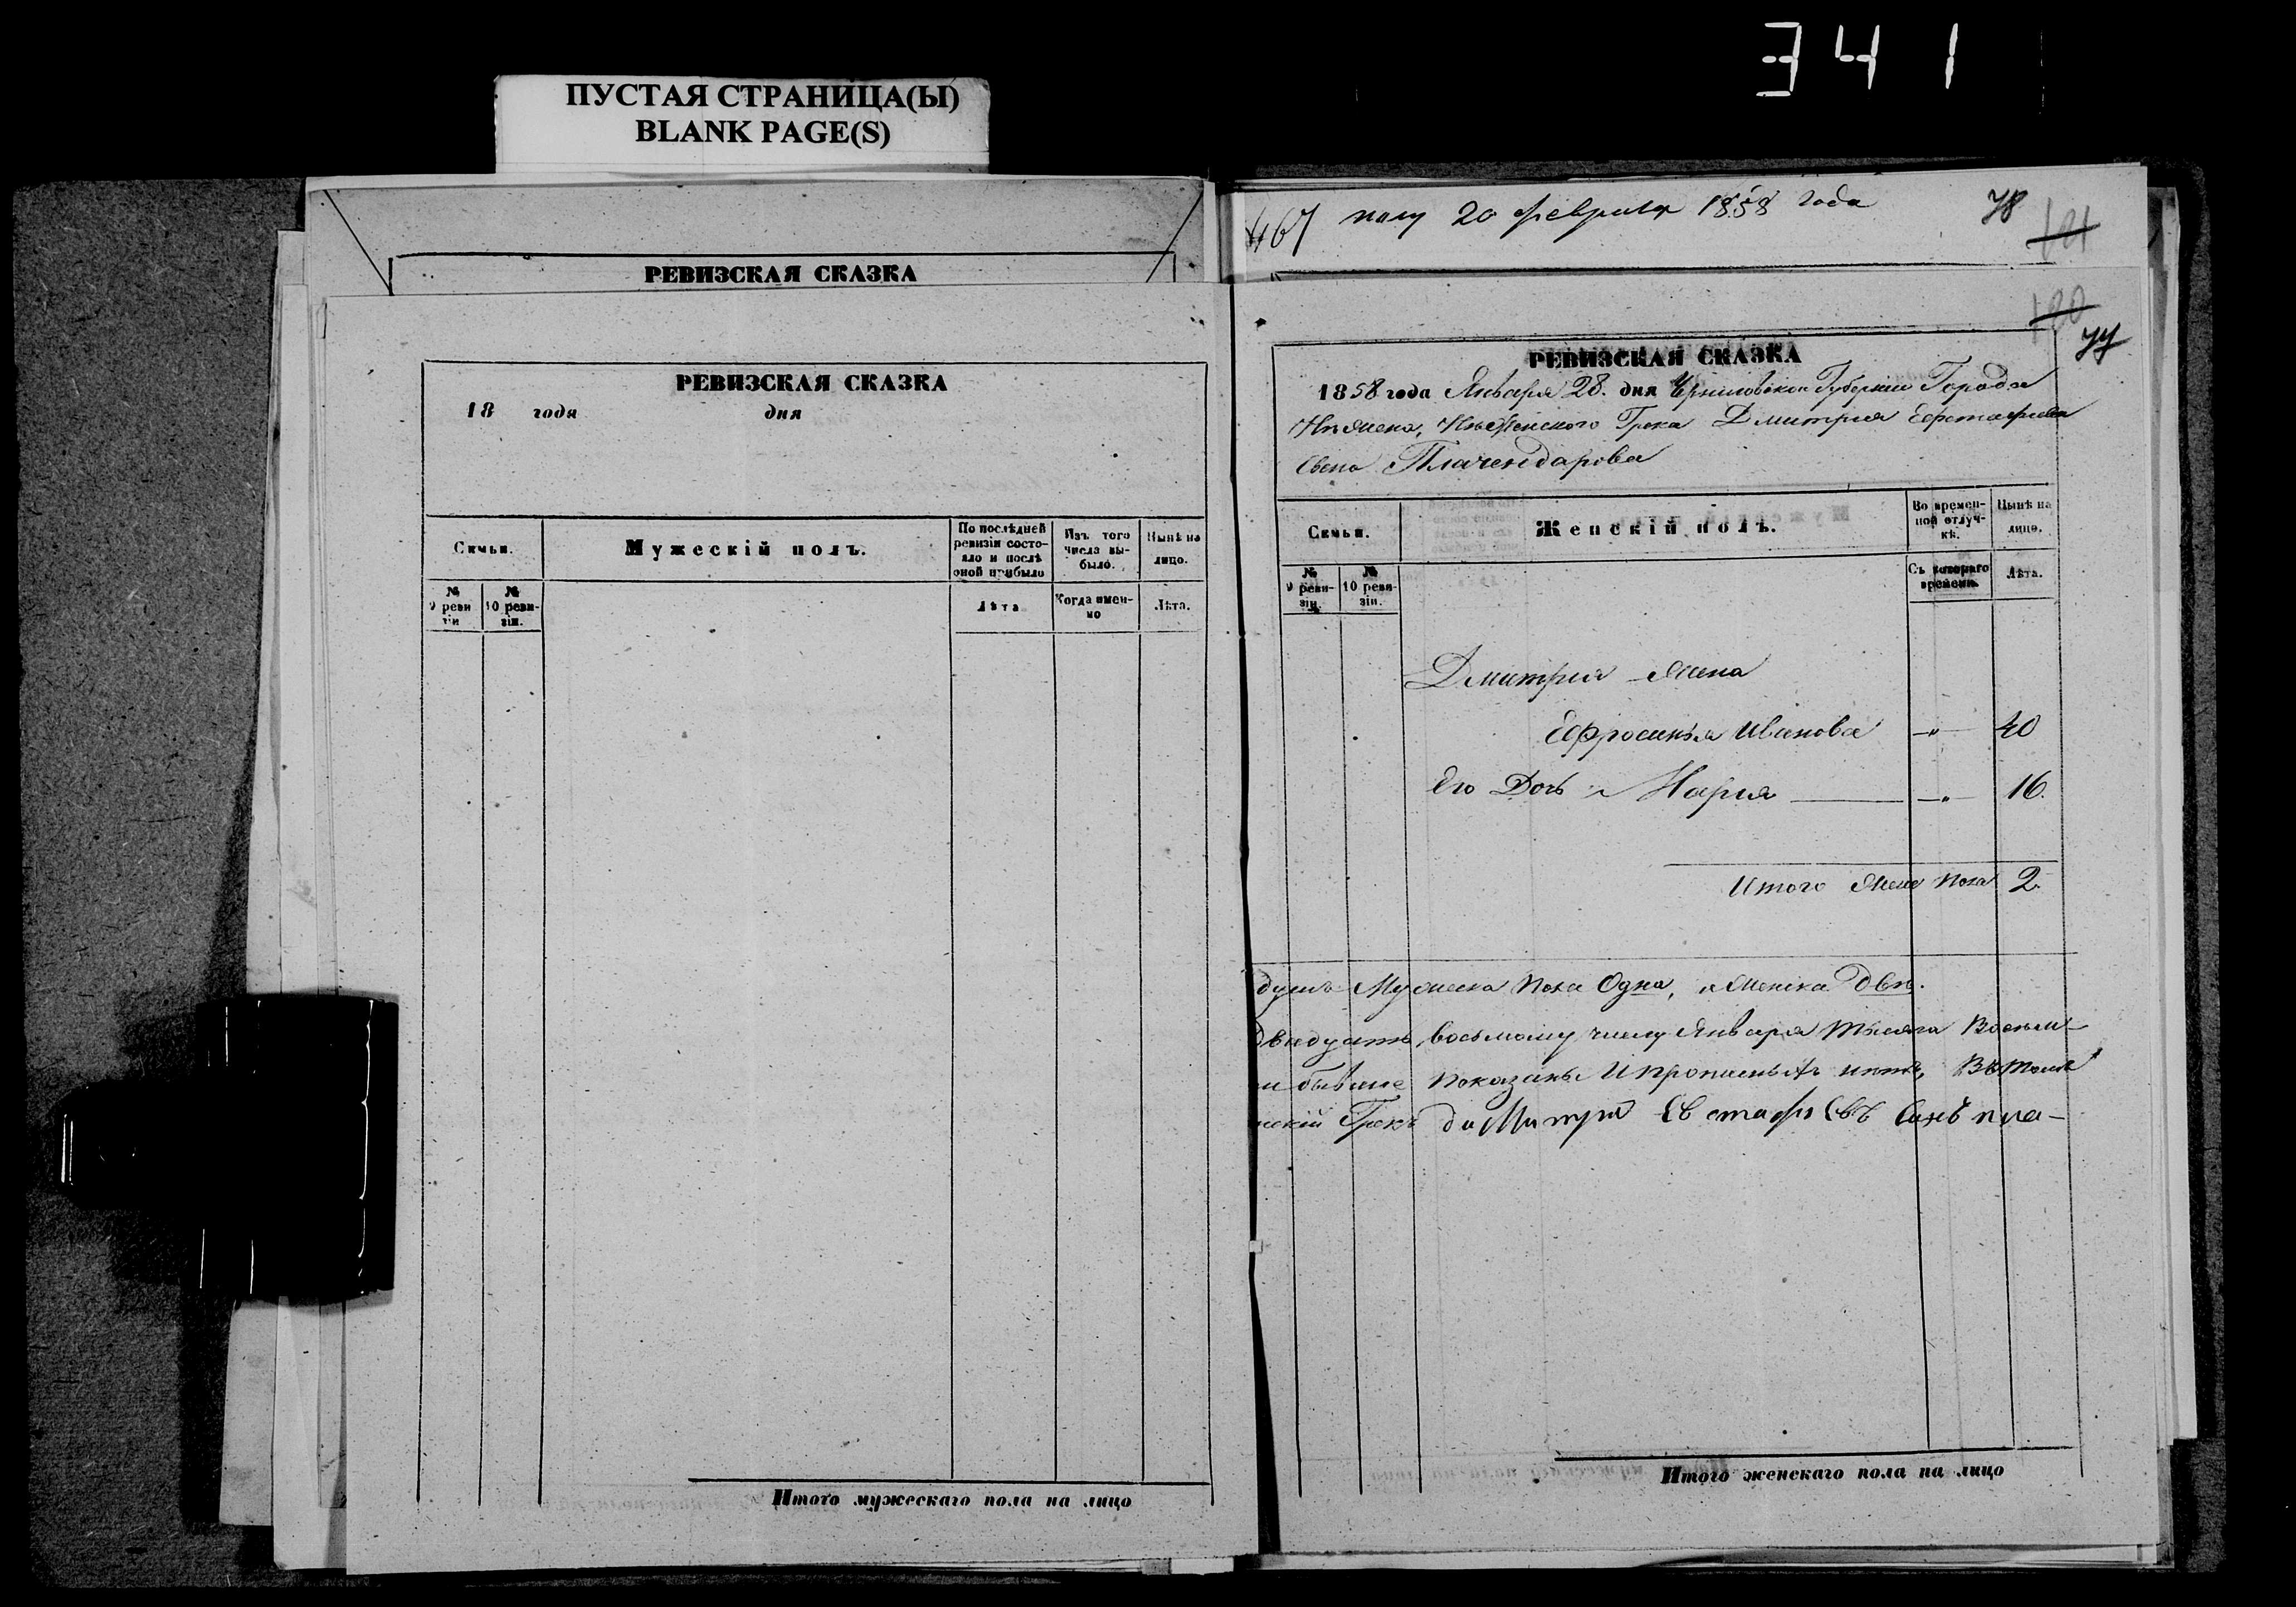 341
ПУСТАЯ СТРАНИЦА(Ы)
BLANK PAGE(S)
РЕВИЗСКАЯ СКАЗКА
РЕВИЗСКАЯ СКАЗКА
18 года дня
Семьи.
Мужескій полъ.
По послѣдней ревизіи состояло и послѣ оной прибыло
Изъ того числа выбыло.
Нынѣ на лицо.
№ 9 ревизіи
№ 10 ревизіи.
Лѣта
Когда именно
Лѣта.
Итого мужескаго пола на лицо
467 полу 20 февраля 1858 года
78
121
120
77
РЕВИЗСКАЯ СКАЗКА
1858 года Января 28. дня Черниговской Губерніи Города
Нѣжина, Нѣжинского Грека Дмитрия Ефстафиева
Сына
Семьи.
Женскій полъ.
Во временной отлучкѣ.
Нынѣ на лицо.
№ 9 ревизіи.
№ 10 ревизіи.
Съ котораго времени.
Лѣта.
Дмитрия жена
Ефросинья Иванова — " — 40
Его Дочь Мария — " — 16.
Итого жен пола 2.
душъ Мужеска пола Одна, и женска Двѣ.
двадцать восьмому числу Января тысяча Восемь-
и бывше показаны И прописныхъ нѣтъ, Въ томъ
нскій Грекъ дь Митри Евстафіевъ Сынъ пла-
Итого женскаго пола на лицо